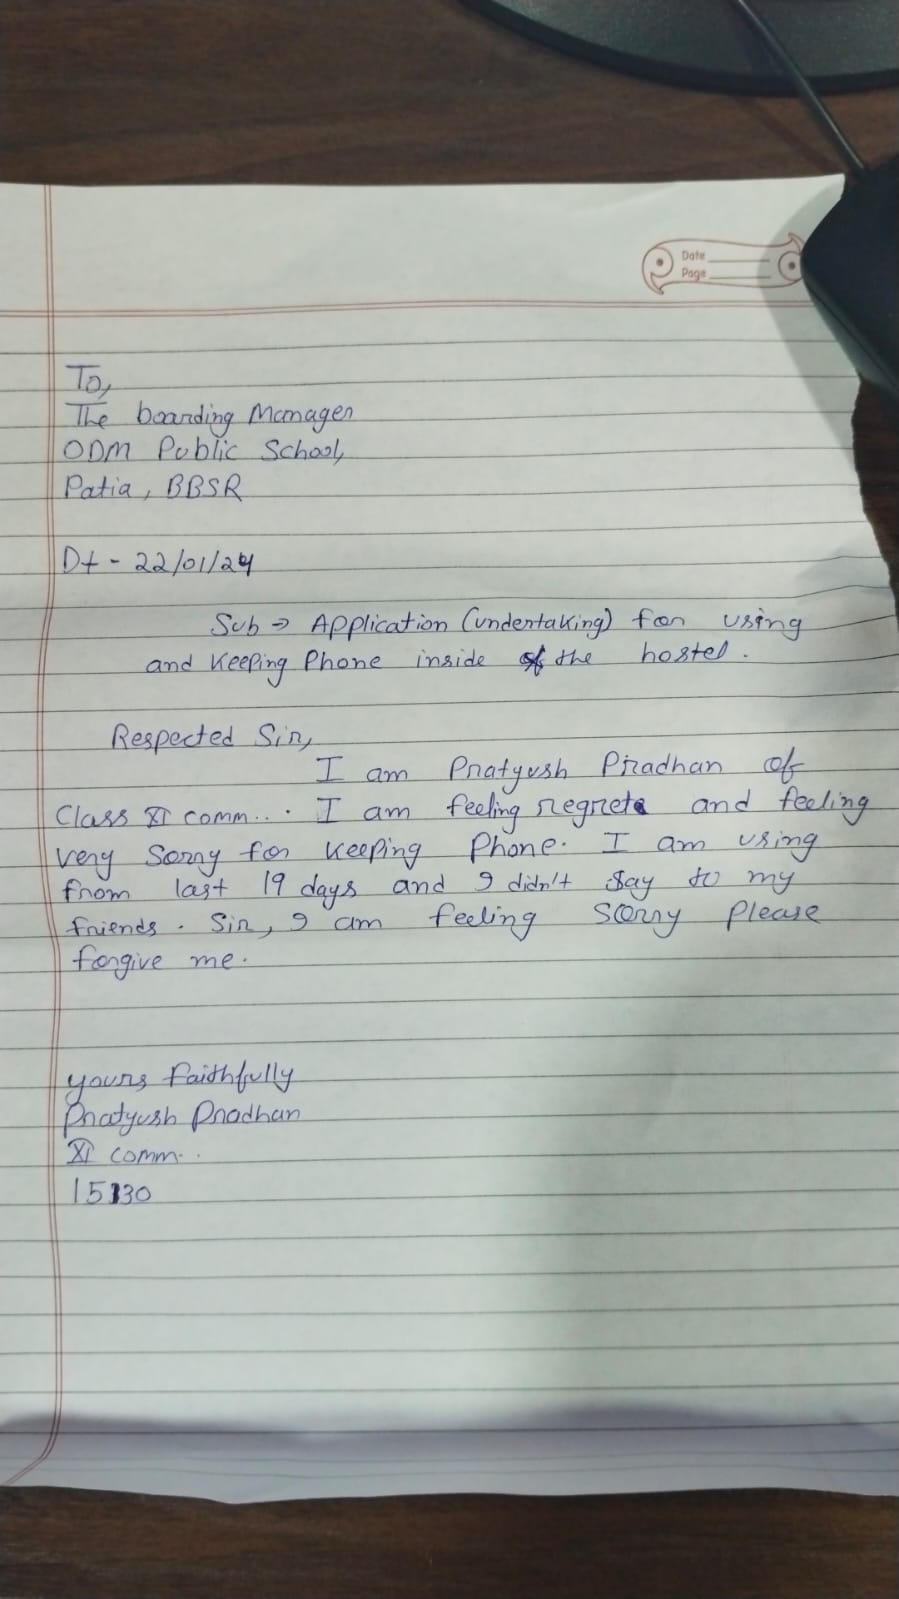 Date
Page
To,
The boarding Manager
ODM Public School,
Patia, BBSR
Dt - 22/01/24
Sub → Application (undertaking) for using
and keeping Phone inside the hostel.
Respected Sir,
I am Pratyush Pradhan of
Class XI comm... I am feeling regret and feeling
very Sorry for keeping Phone. I am using
from last 19 days and I didn't say to my
friends. Sir, I am feeling sorry Please
forgive me.
yours faithfully
Pratyush Pradhan
XI comm..
15130